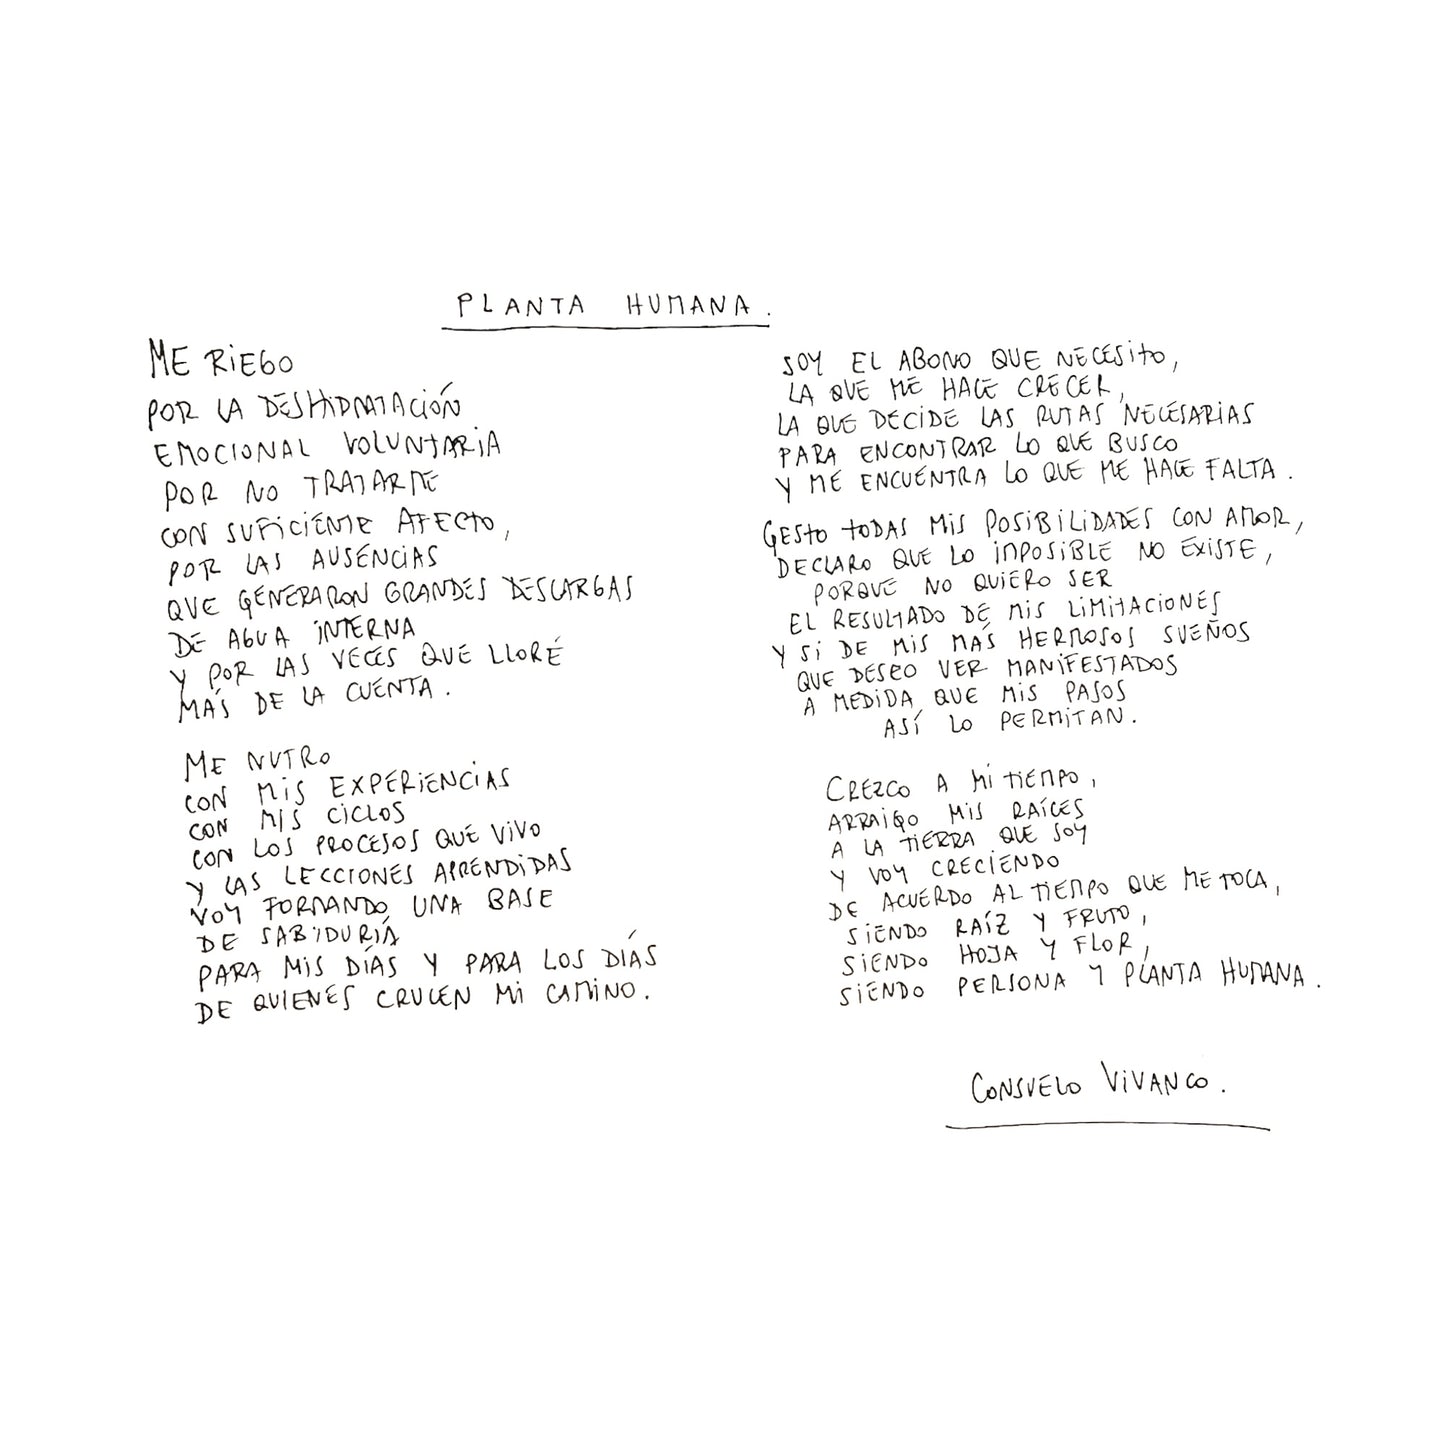 PLANTA HUMANA.
ME RIEGO
POR LA DESHIDRATACIÓN
EMOCIONAL VOLUNTARIA
POR NO TRATARME
CON SUFICIENTE AFECTO,
POR LAS AUSENCIAS
QUE GENERARON GRANDES DESCARGAS
DE AGUA INTERNA
Y POR LAS VECES QUE LLORÉ
MÁS DE LA CUENTA.
ME NUTRO
CON MIS EXPERIENCIAS
CON MIS CICLOS
CON LOS PROCESOS QUE VIVO
Y LAS LECCIONES APRENDIDAS
VOY FORMANDO UNA BASE
DE SABIDURÍA
PARA MIS DÍAS Y PARA LOS DÍAS
DE QUIENES CRUCEN MI CAMINO.
SOY EL ABONO QUE NECESITO,
LA QUE ME HACE CRECER,
LA QUE DECIDE LAS RUTAS NECESARIAS
PARA ENCONTRAR LO QUE BUSCO
Y ME ENCUENTRA LO QUE ME HACE FALTA.
GESTO TODAS MIS POSIBILIDADES CON AMOR,
DECLARO QUE LO IMPOSIBLE NO EXISTE,
PORQUE NO QUIERO SER
EL RESULTADO DE MIS LIMITACIONES
Y SI DE MIS MÁS HERMOSOS SUEÑOS
QUE DESEO VER MANIFESTADOS
A MEDIDA QUE MIS PASOS
ASÍ LO PERMITAN.
CREZCO A MI TIEMPO,
ARRAIGO MIS RAÍCES
A LA TIERRA QUE SOY
Y VOY CRECIENDO
DE ACUERDO AL TIEMPO QUE ME TOCA,
SIENDO RAÍZ Y FRUTO,
SIENDO HOJA Y FLOR,
SIENDO PERSONA Y PLANTA HUMANA.
CONSUELO VIVANCO.